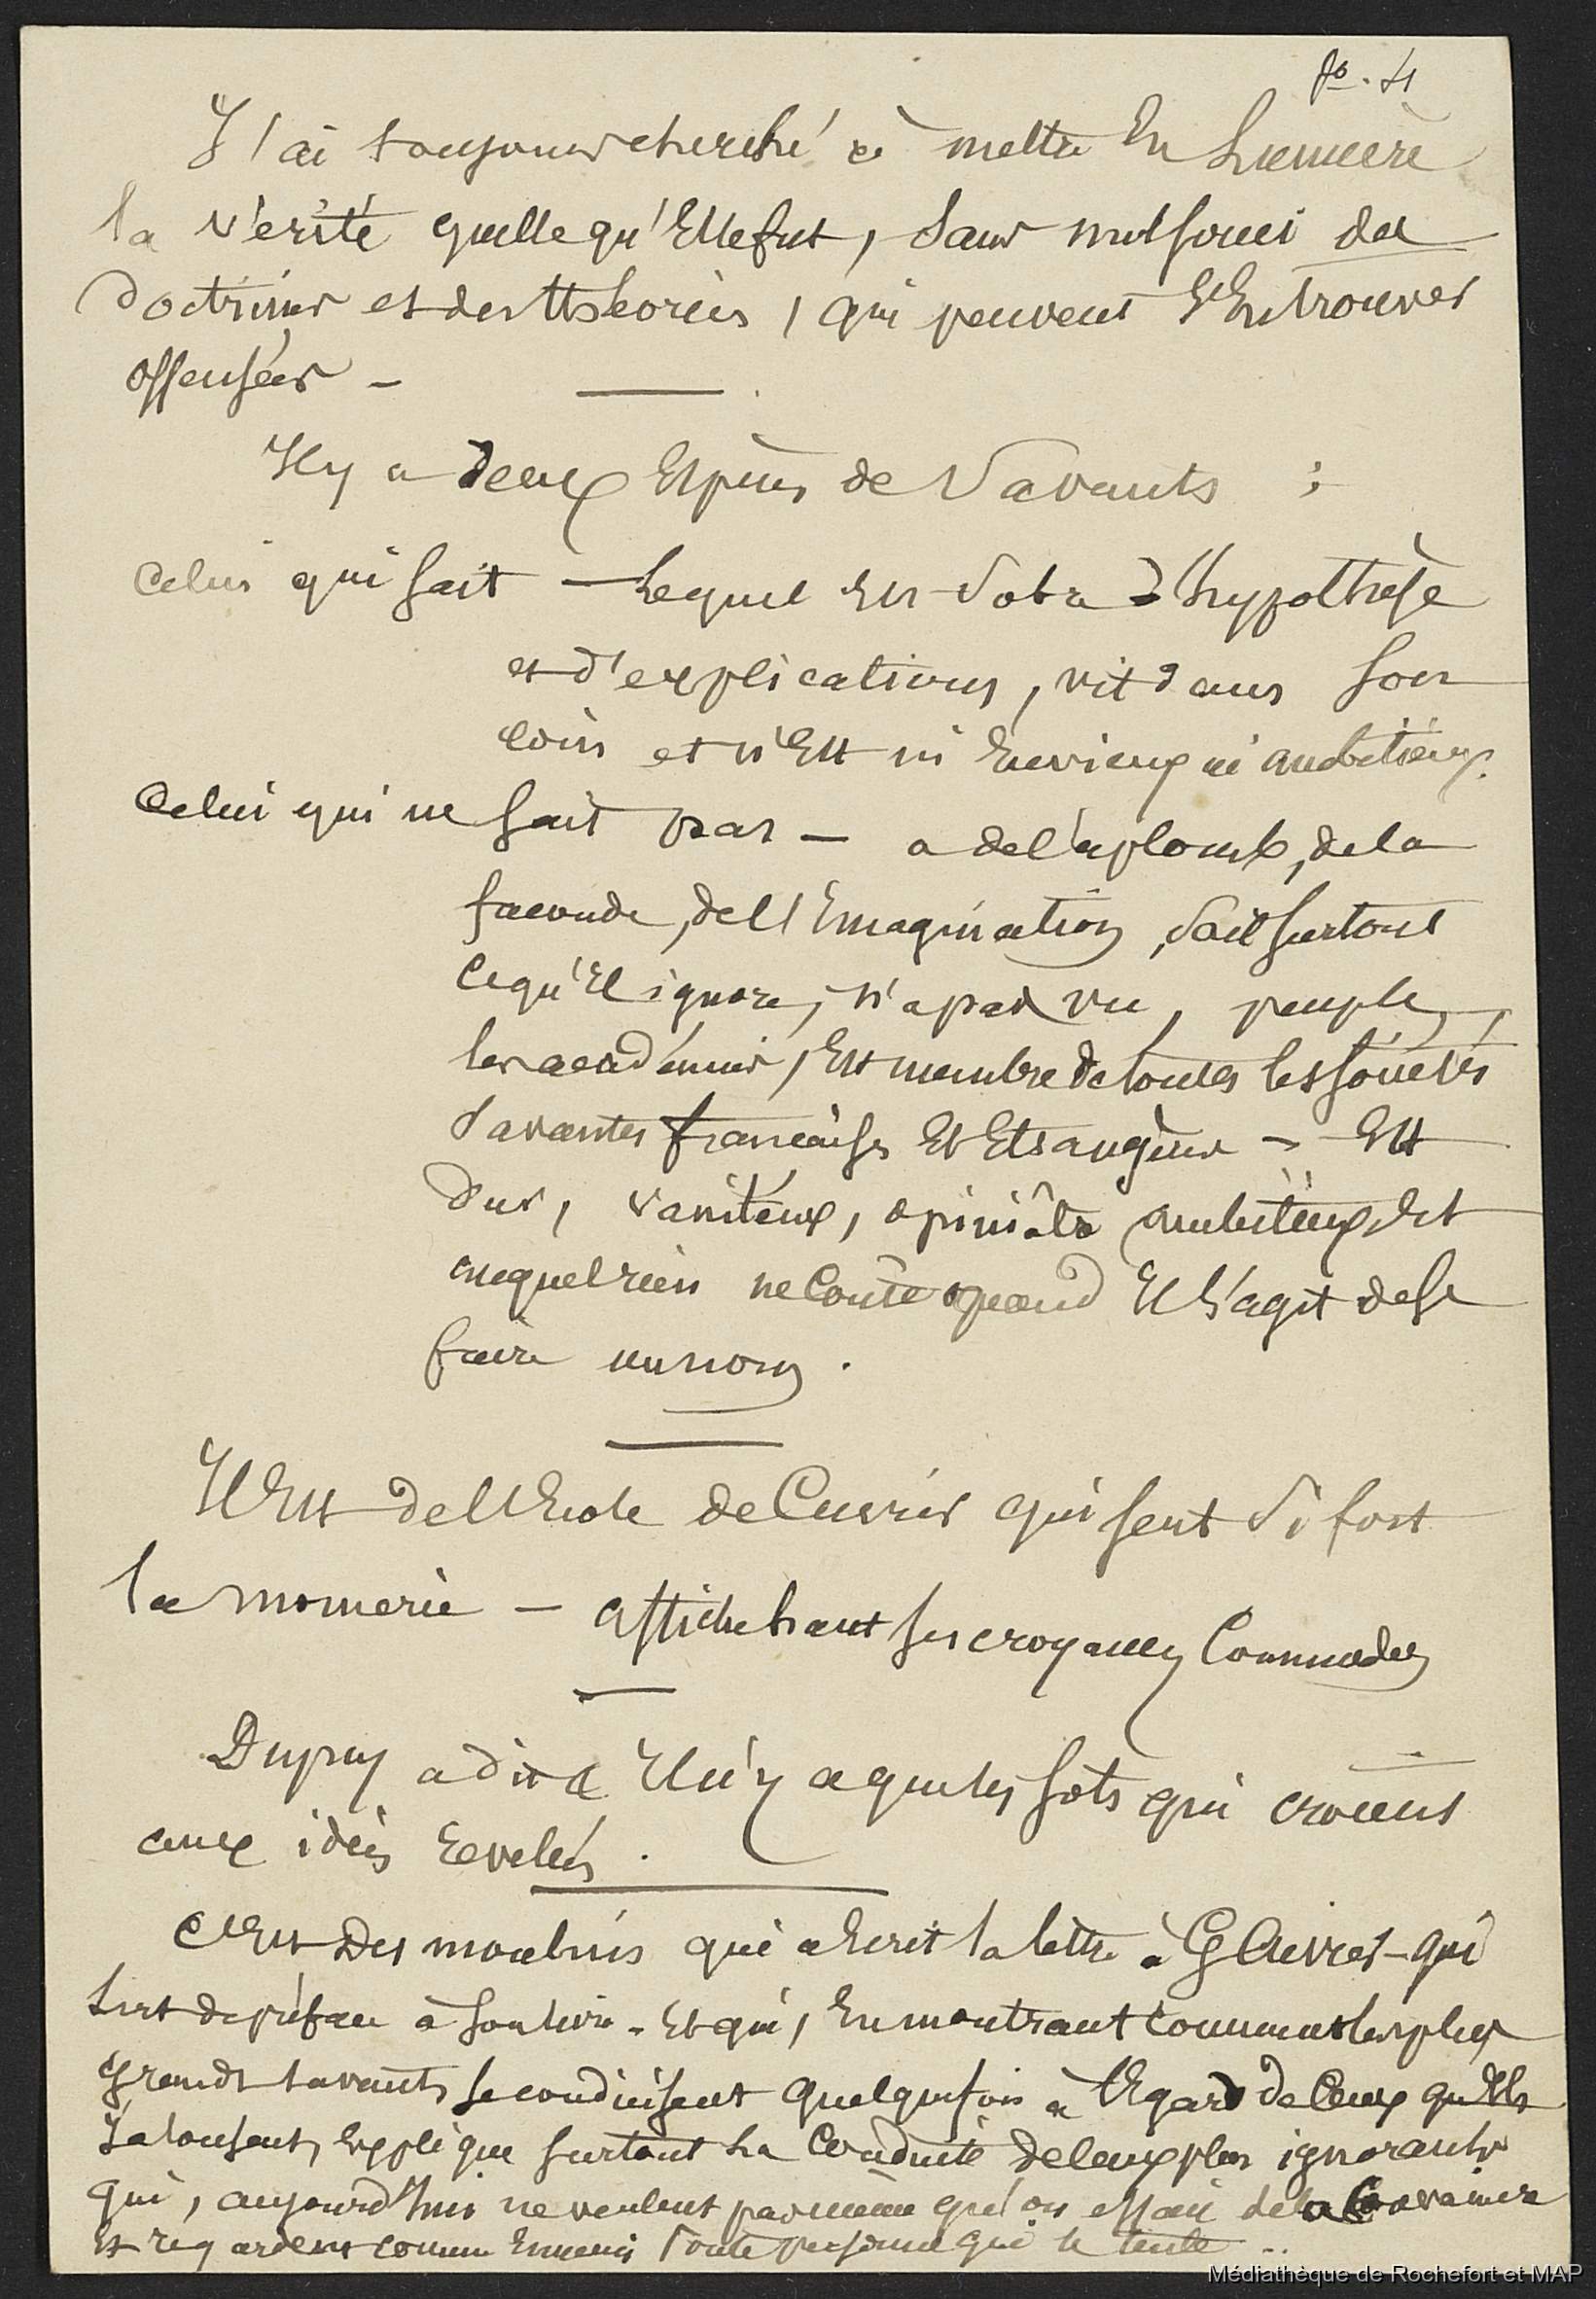 fo. 41
J'ai toujours cherché à mettre En Lumière
la vérité quelle qu'Elle fut, sans nul souci des
doctrines et des théories, qui peuvent s'En trouver
offensées —
Il y a deux Espèces de Savants :
Celui qui sait — Lequel Est sobre d'hypothèse
et d'explications, vit dans son
coin et n'Est ni Envieux ni ambitieux.
Celui qui ne sait pas — a de l'aplomb, de la
faconde, de l'Imagination, sait surtout
ce qu'Il ignore, n'a pas vu, peuple,
les académies, Est membre de toutes les sociétés
savantes françaises Et Etrangères — Est
dur, vaniteux, opiniâtre ambitieux, Et
auquel rien ne Coute quand Il s'agit de se
faire un nom.
Il Est de l'Ecole de Cuvier qui sent si fort
la momerie — affichant ses croyances Commodes
Dupuy a dit Il n'y a que les sots qui croient
aux idées Revelées.
C'Est Desmoulins qui a Ecrit la lettre à G Cuvier — qui
sert de préface à son livre. Et qui, En montrant comment les plus
grands savants se conduisent quelquefois à l'Egard de Ceux qu'Ils
jalousent, Explique surtout la Conduite de ceux plus ignorants
qui, aujourd'hui ne veulent pas même qu'on essaie de les Convaincre
Et regardent comme Ennemis toute personne qui le tente ..
Médiathèque de Rochefort et MAP